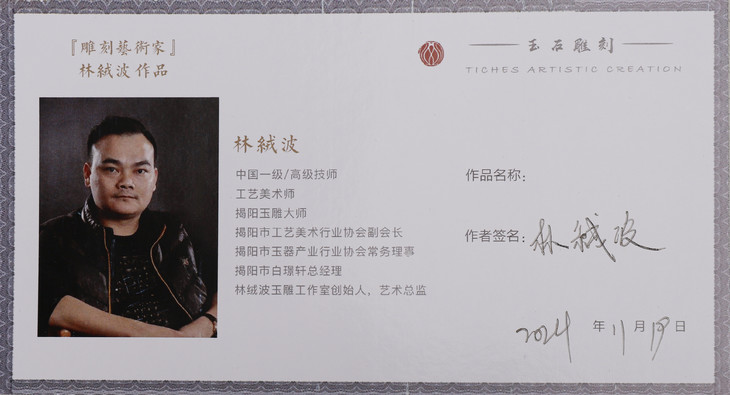 『雕刻藝術家』
林絨波作品
玉石雕刻
TICHES ARTISTIC CREATION
林絨波
中国一级/高级技师
工艺美术师
揭阳玉雕大师
揭阳市工艺美术行业协会副会长
揭阳市玉器产业行业协会常务理事
揭阳市白璟轩总经理
林绒波玉雕工作室创始人，艺术总监
作品名称：
作者签名：林絨波
2024年11月19日